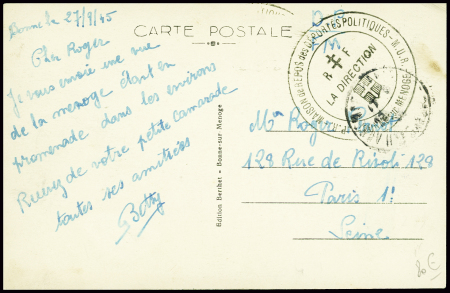 Bonne le 27/9/45
CARTE POSTALE
Cher Roger
Je vous envoie une vue
de la menoge étant en
promenade dans les environs
Recevez de votre petite Camarade
toutes ses amitiées
Betty
Edition Berthet - Bonne-sur Menoge
D.P.
MAISON DE REPOS des DÉPORTÉS POLITIQUES - M.U.R.
MENOGE
R F
LA DIRECTION
Mr Roger
128 Rue de Rivoli 128
Paris 1:
Seine
80 €